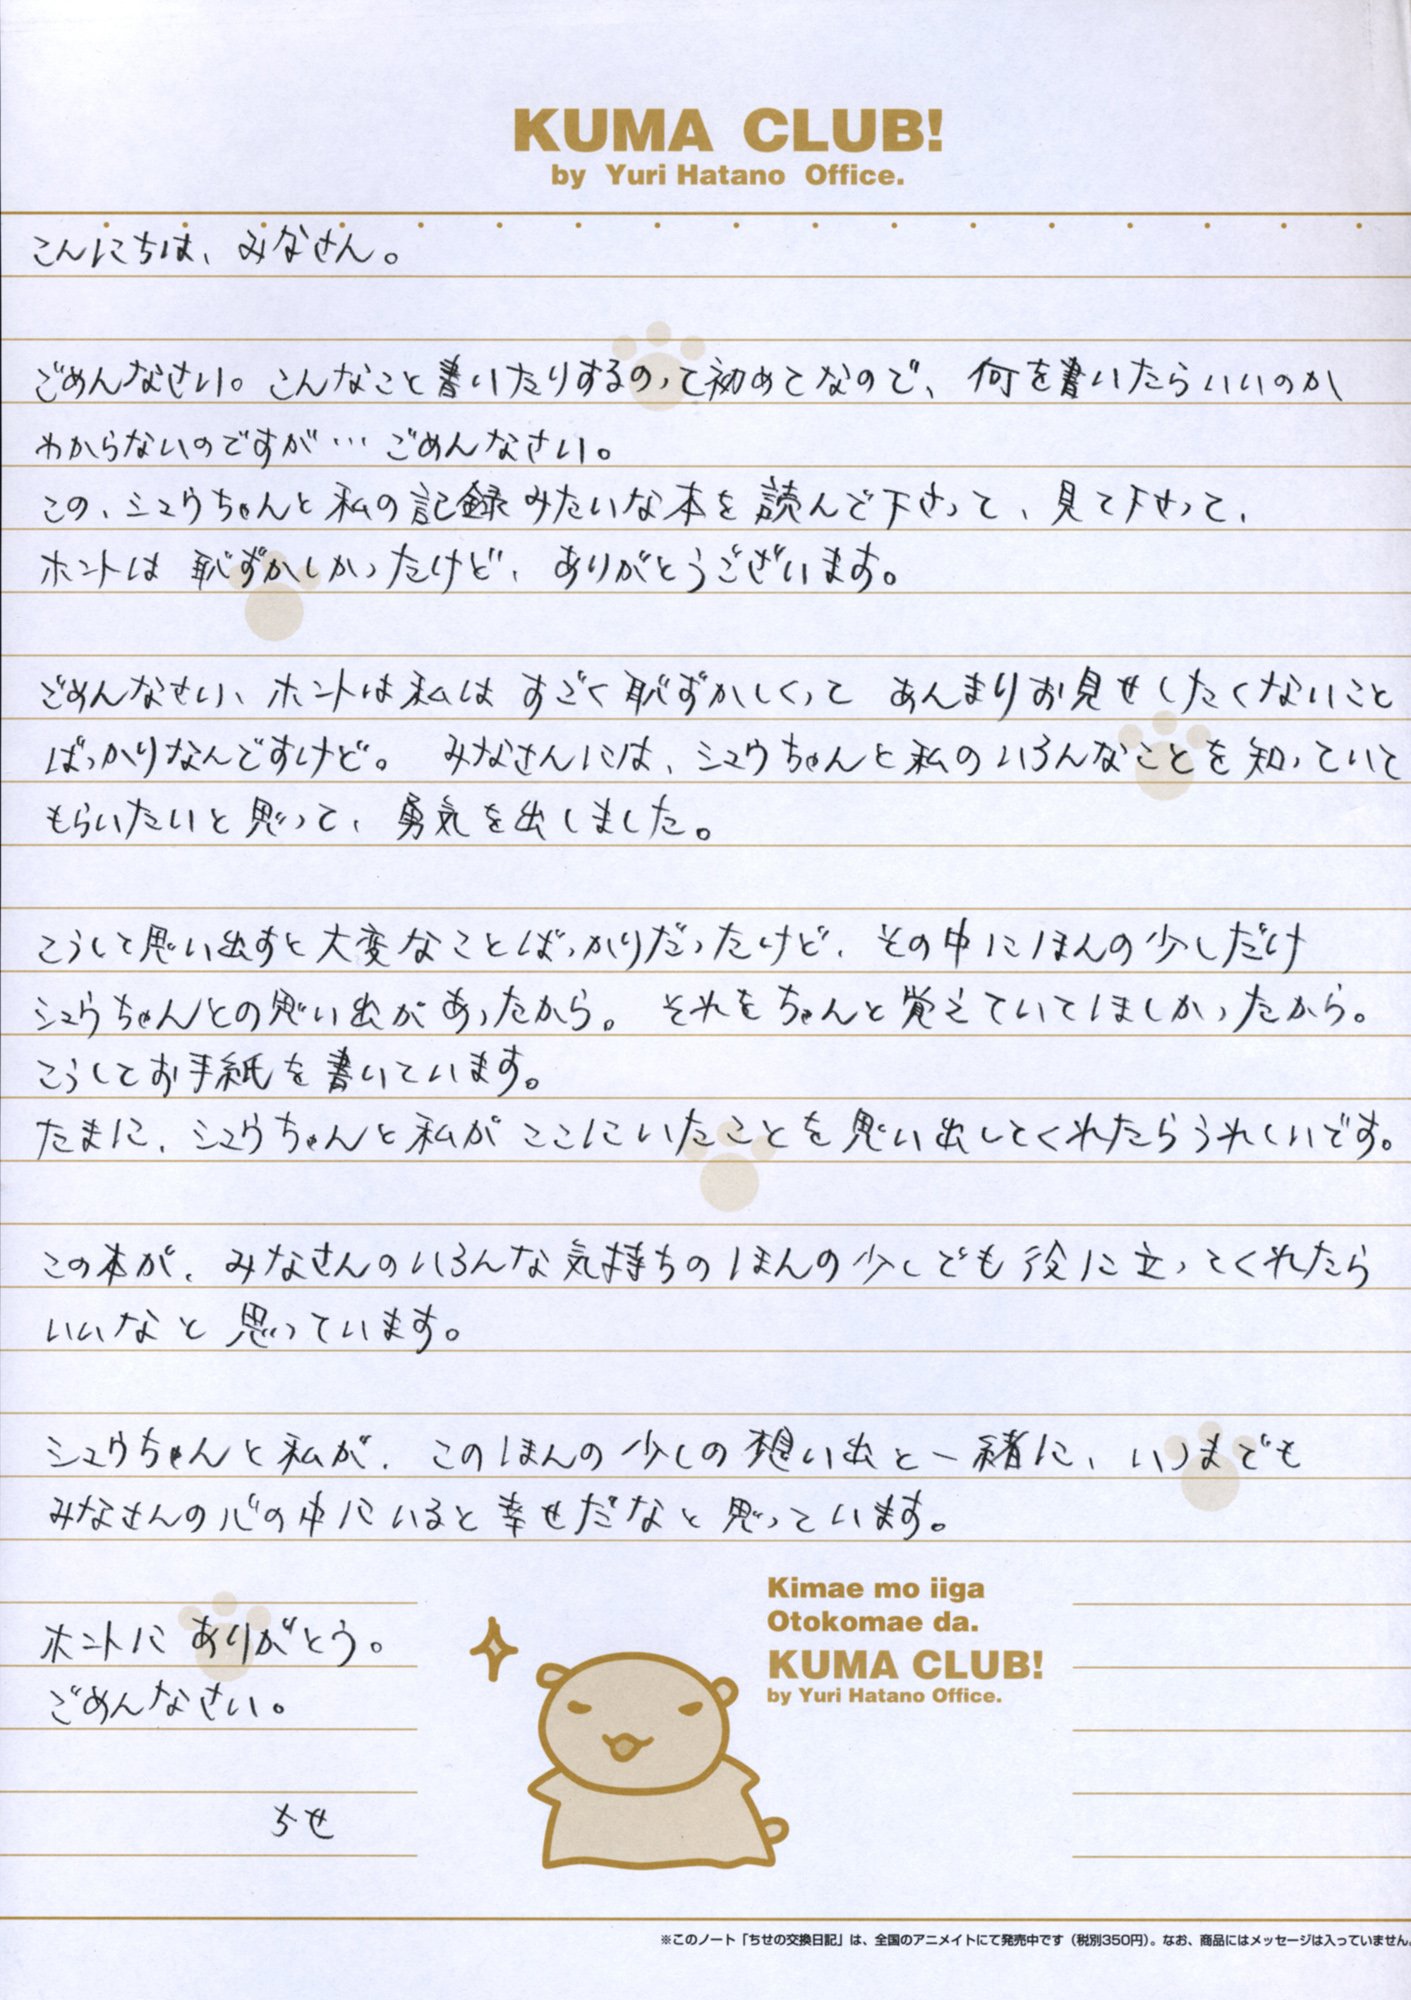 KUMA CLUB!
by Yuri Hatano Office.
こんにちは、みなさん。
ごめんなさい。こんなこと書いたりするのって初めてなので、何を書いたらいいのか
わからないのですが…ごめんなさい。
この、シュウちゃんと私の記録みたいな本を読んで下さって、見て下さって、
ホントは恥ずかしかったけど、ありがとうございます。
ごめんなさい、ホントは私はすごく恥ずかしくって あんまりお見せしたくないこと
ばっかりなんですけど。 みなさんには、シュウちゃんと私のいろんなことを知っていて
もらいたいと思って、勇気を出しました。
こうして思い出すと大変なことばっかりだったけど、その中にほんの少しだけ
シュウちゃんとの思い出があったから。 それをちゃんと覚えていてほしかったから。
こうしてお手紙を書いています。
たまに、シュウちゃんと私がここにいたことを思い出してくれたらうれしいです。
この本が、みなさんのいろんな気持ちのほんの少しでも役に立ってくれたら
いいなと思っています。
シュウちゃんと私が、このほんの少しの想い出と一緒に、いつまでも
みなさんの心の中にいると幸せだなと思っています。
ホントにありがとう。
ごめんなさい。
ちせ
Kimae mo iiga
Otokomae da.
KUMA CLUB!
by Yuri Hatano Office.
※このノート「ちせの交換日記」は、全国のアニメイトにて発売中です（税別350円）。なお、商品にはメッセージは入っていません。